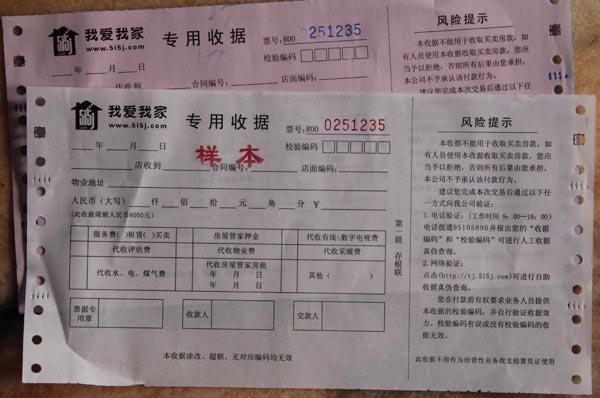 我爱我家
www.5i5j.com
专用收据
票号:R00 0251235
校验编码:
年 月 日
店收到 合同编号: 店面编码:
风险提示
本收据不能用于收取买卖房款,如
有人员使用本收据收取买卖房款,您应
当予以拒绝,否则所有后果由您承担,
本公司不予承认该付款行为。
建议您完成本次交易后通过以下任
5i5j
我爱我家
www.5i5j.com
专用收据
票号:R00 0251235
校验编码:
年 月 日
样本
店收到 合同编号: 店面编码:
物业地址
人民币(大写) 仟 佰 拾 元 角 分 ¥
(此收据限额人民币8000元)
服务费( )租赁( )买卖 房屋管家押金 代收有线\数字电视费
代收评估费 代收物业费 代收采暖费
代收水、电、煤气费 代收房屋管家房租 其他( )
年 月 日
年 月 日
第一联 存根联
票据专用章 收款人 交款人
本收据涂改、超额、无对应编码均无效
风险提示
本收据不能用于收取买卖房款,如
有人员使用本收据收取买卖房款,您应
当予以拒绝,否则所有后果由您承担,
本公司不予承认该付款行为。
建议您完成本次交易后通过以下任
一方式向我公司验证:
1.电话验证:(工作时间 9:00—18:00)
电话拨通95105890并报出您的“收据
编码”和“校验编码”可进行人工收据
真伪查询。
2.网络验证:
点击(http://tj.5i5j.com)可进行自助
收据真伪查询。
您在付款前有权要求业务人员提供
本收据的校验编码,并自行验证收据效
力。校验编码有误或没有校验编码的收
据无效。
此收据不得作为经营性业务收支结算凭证使用